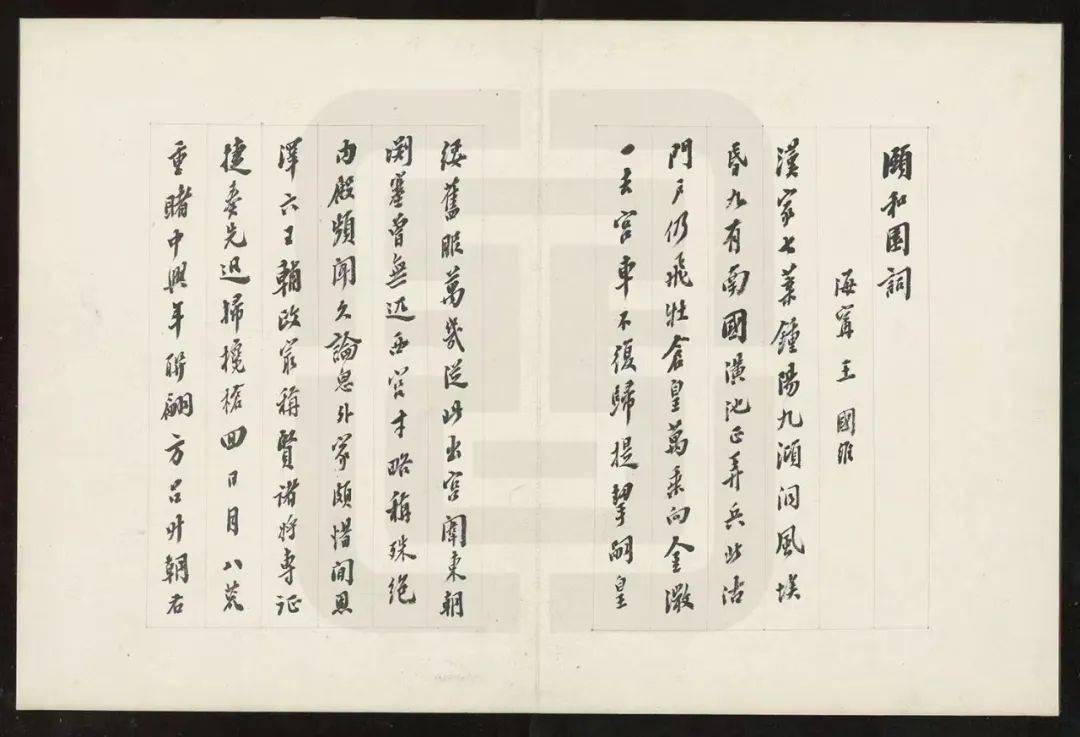 頤和園詞
海寧王國維
漢家七葉鍾陽九澒洞風埃
昏九有南國潢池正弄兵北沽
門戶仍飛牡倉皇萬乘向金微
一去宮車不復歸提挈嗣皇
綏舊服萬幾從此出宮闈東朝
淵塞曾無匹西宮才略稱殊絕
內殿頻聞久論息外家頗惜閒恩
澤六王輔政最稱賢諸將專征
捷奏先迅掃欃槍回日月八荒
重睹中興年聯翩方召升朝右